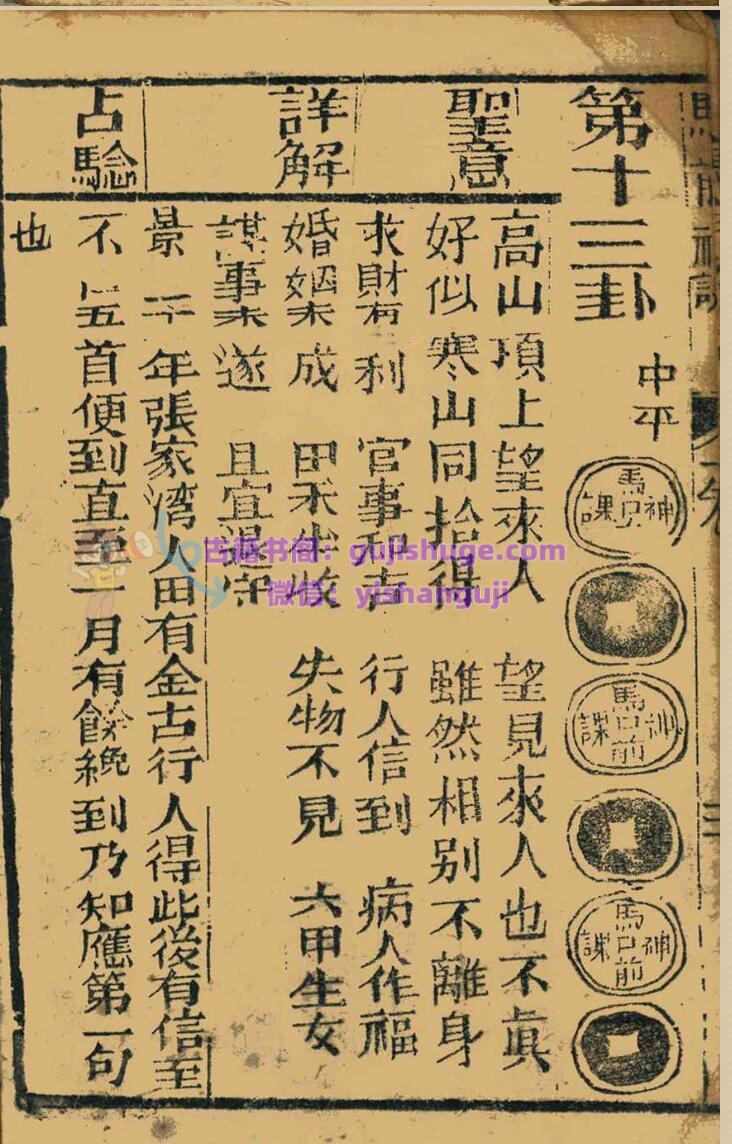 第十三卦
中平
馬口前神課
馬口前神課
馬口前神課
聖意
高山項上望來人 望見來人也不眞
好似寒山同拾得 雖然相别不離身
詳解
求財有利 官事和吉 行人信到 病人作福
婚姻未成 田禾 失物不見 六甲生女
謀事未遂 且宜退守
占驗
景 年張家湾人田有金占行人得此後有信至
不 五首便到直至一月有餘纔到乃知應第一句
也
古籍书阁：gujishuge.com
微信：yishanguji